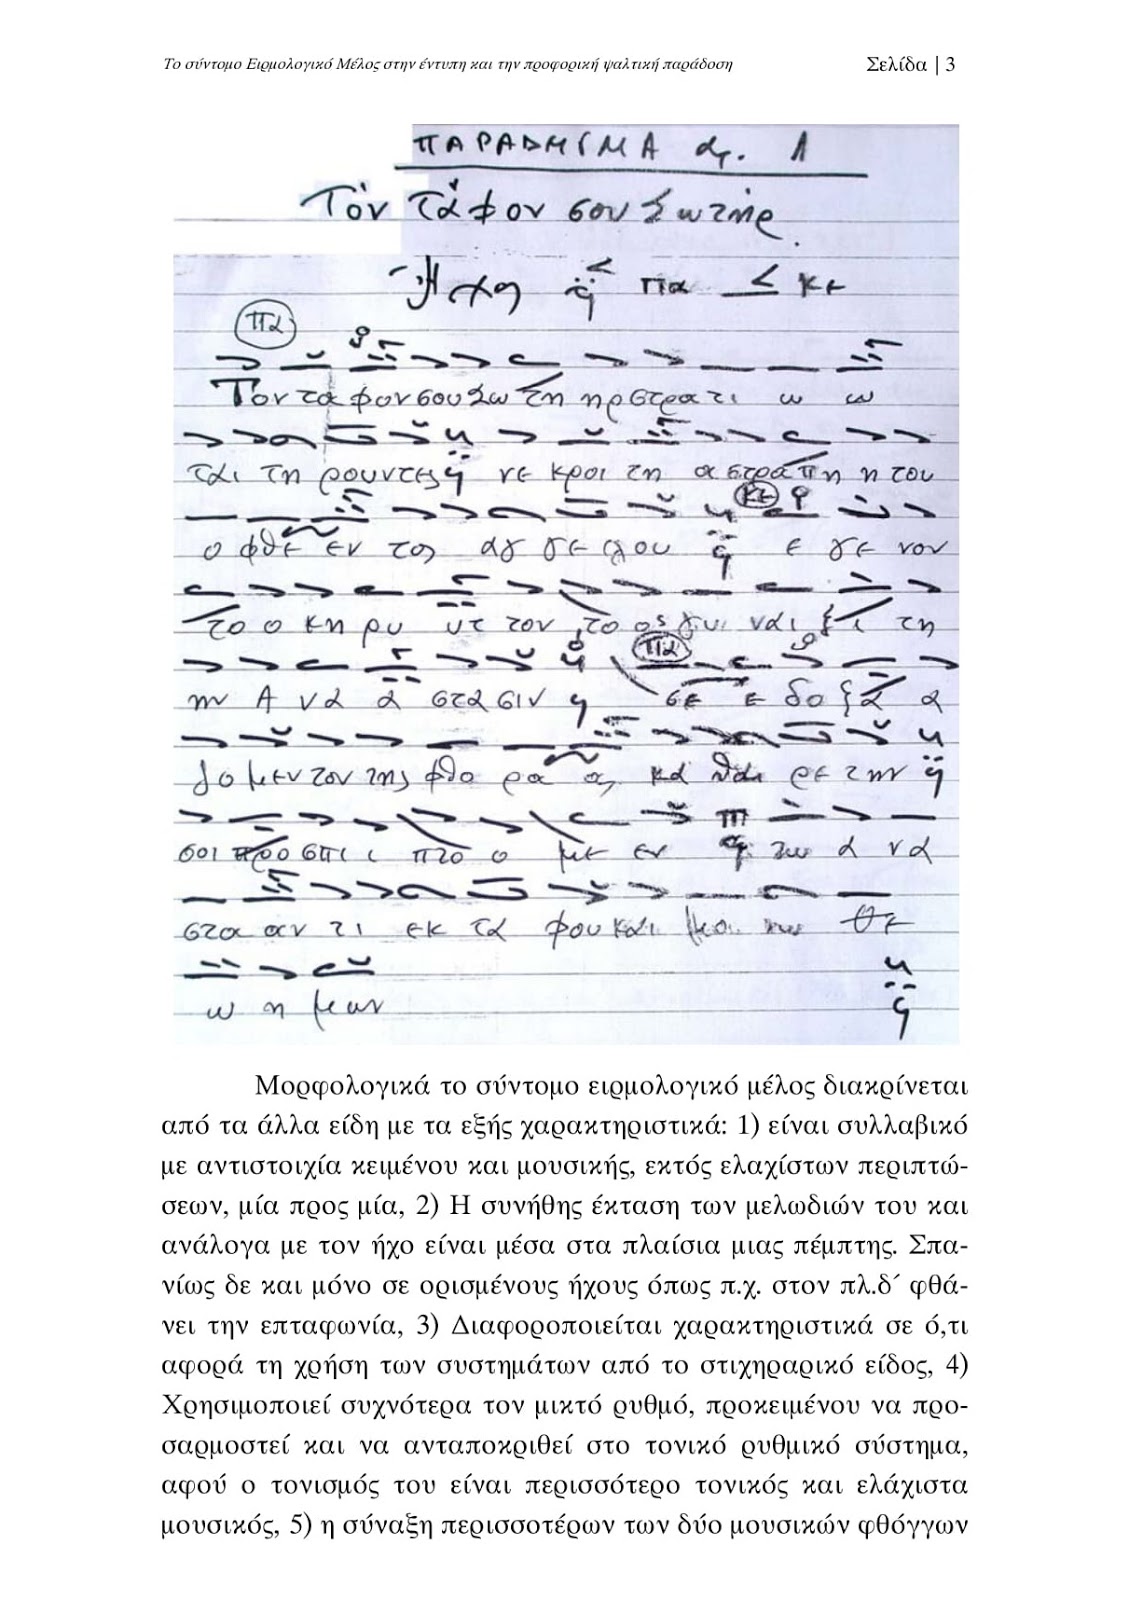 Το σύντομο Ειρμολογικό Μέλος στην έντυπη και την προφορική ψαλτική παράδοση Σελίδα | 3
ΠΑΡΑΔΗΓΜΑ αρ. 1
Τόν τάφον σου Σωτήρ.
Ήχος πα κε
πα
Τον τα φον σου Σω τη ηρ στρα τι ω ω
ται τη ρουντες νε κροι τη α στρα πη η του
κε
ο φθε εν τος αγ γε λου ε γε νον
το ο κη ρυ υτ τον το ος γυ ναι ξι τη
πα
ην Α να α στα σιν σε ε δο ξα α
ζο μεν τον της φθο ρα ας κα θαι ρε την
σοι προ σπι ι πτο ο με εν τω α να
στα αν τι εκ τα φου και μο νω Θε
ω η μων
Μορφολογικά το σύντομο ειρμολογικό μέλος διακρίνεται
από τα άλλα είδη με τα εξής χαρακτηριστικά: 1) είναι συλλαβικό
με αντιστοιχία κειμένου και μουσικής, εκτός ελαχίστων περιπτώ-
σεων, μία προς μία, 2) Η συνήθης έκταση των μελωδιών του και
ανάλογα με τον ήχο είναι μέσα στα πλαίσια μιας πέμπτης. Σπα-
νίως δε και μόνο σε ορισμένους ήχους όπως π.χ. στον πλ.δ΄ φθά-
νει την επταφωνία, 3) Διαφοροποιείται χαρακτηριστικά σε ό,τι
αφορά τη χρήση των συστημάτων από το στιχηραρικό είδος, 4)
Χρησιμοποιεί συχνότερα τον μικτό ρυθμό, προκειμένου να προ-
σαρμοστεί και να ανταποκριθεί στο τονικό ρυθμικό σύστημα,
αφού ο τονισμός του είναι περισσότερο τονικός και ελάχιστα
μουσικός, 5) η σύναξη περισσοτέρων των δύο μουσικών φθόγγων